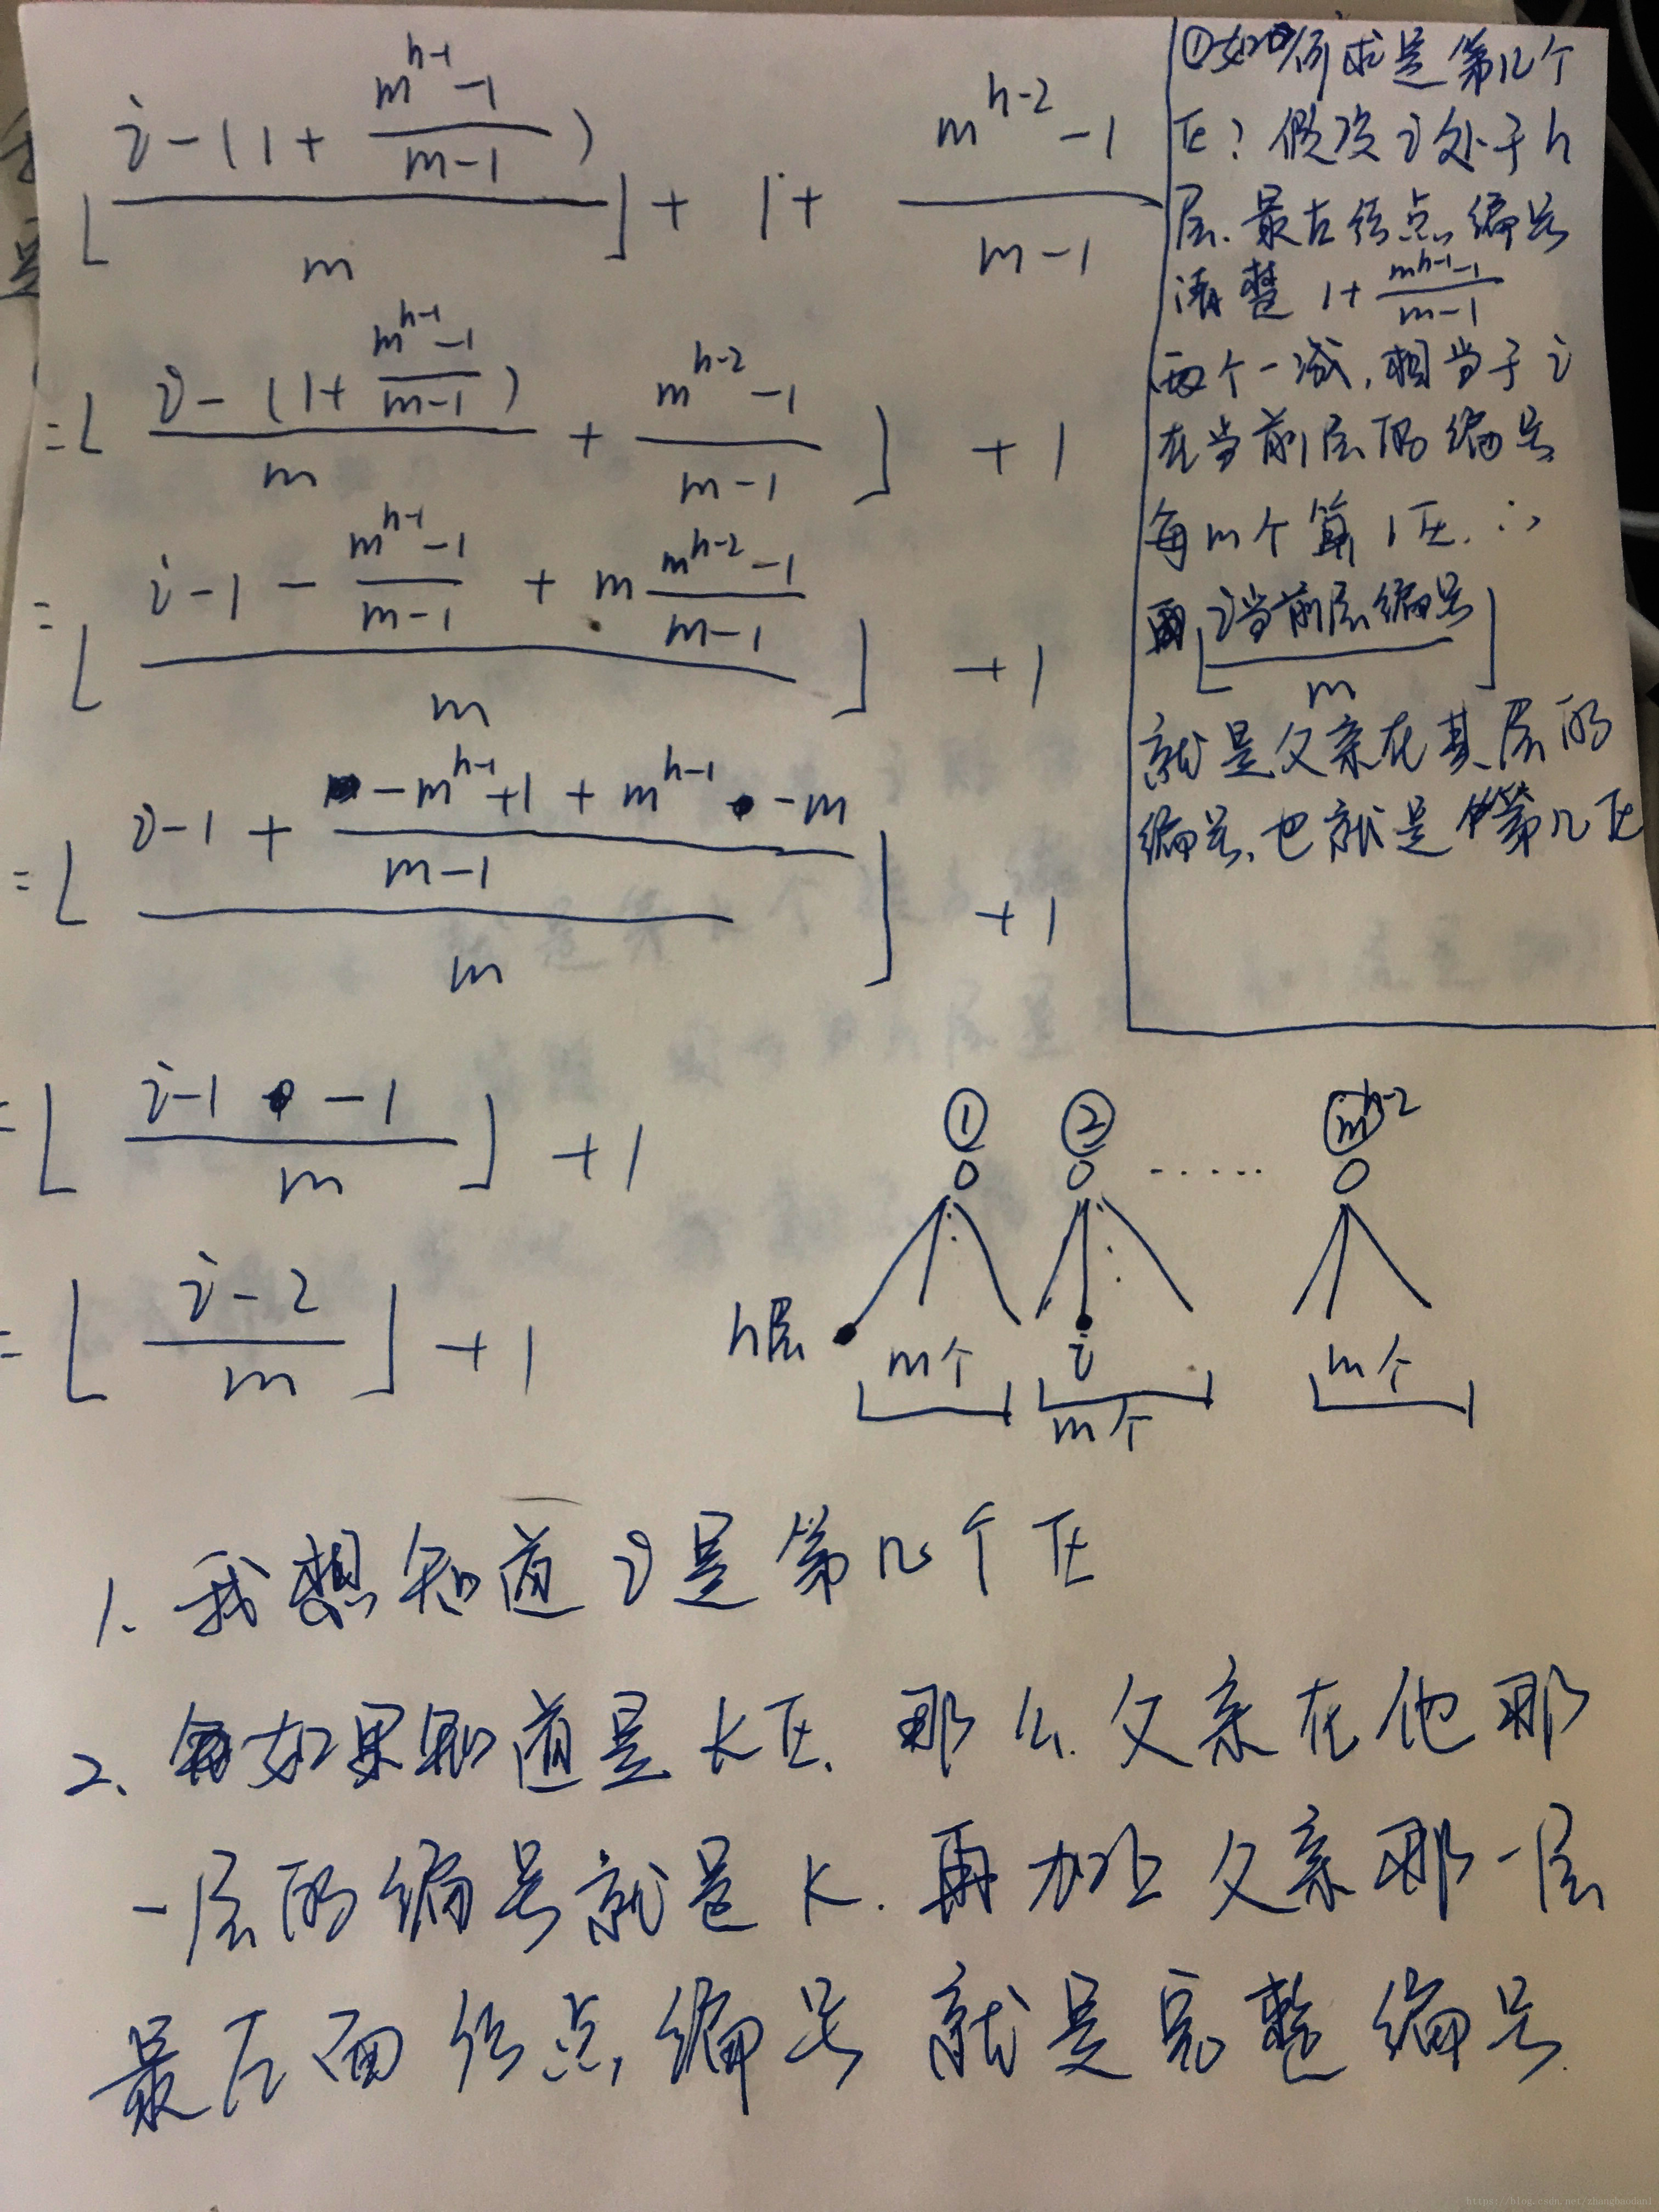 ⌊(i-(1+(m^{h-1}-1)/(m-1)))/m⌋ + 1 + (m^{h-2}-1)/(m-1)
=⌊(i-(1+(m^{h-1}-1)/(m-1)))/m + (m^{h-2}-1)/(m-1)⌋ +1
=⌊(i-1-(m^{h-1}-1)/(m-1) + m(m^{h-2}-1)/(m-1))/m⌋ +1
=⌊(i-1+(-m^{h-1}+1+m^{h-1}-m)/(m-1))/m⌋ +1
=⌊(i-1-1)/m⌋ +1
=⌊(i-2)/m⌋ +1
①如何求是第几个
在?假设i处于h
层.最左结点编号
清楚 1+(m^{h-1}-1)/(m-1)
两个一减,相当于i
在当前层的编号
每m个算1在.∴
再⌊i当前层编号/m⌋
就是父亲在其层的
编号,也就是第几在
① ② m^{h-2}
.....
h层 m个 i m个
m个
1.我想知道i是第几个在
2、如果知道是k在.那么.父亲在他那
一层的编号就是k.再加上父亲那一层
最左面结点编号就是完整编号.
https://blog.csdn.net/zhanghaodan1